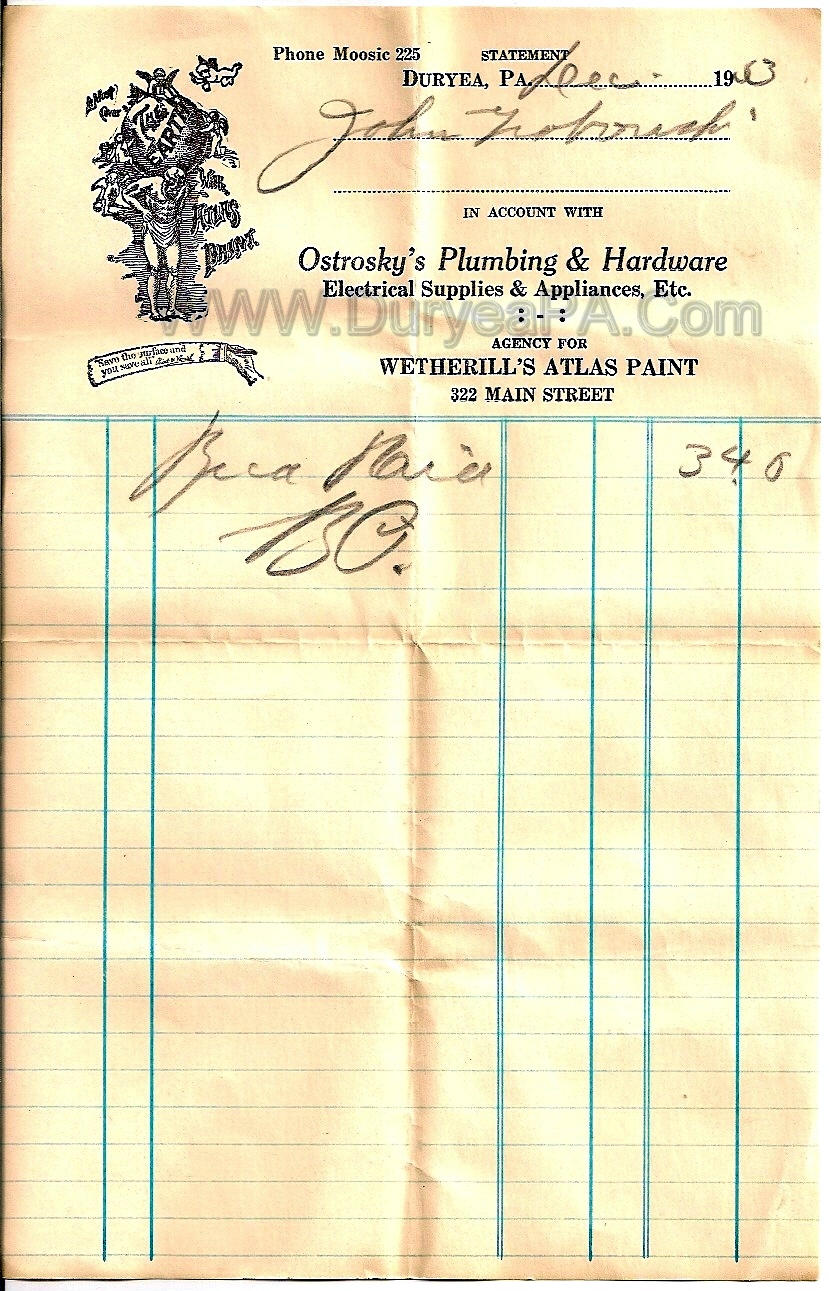 Phone Moosic 225 STATEMENT
DURYEA, PA. Dec. 19
John
IN ACCOUNT WITH
Ostrosky's Plumbing & Hardware
Electrical Supplies & Appliances, Etc.
: - :
www.DuryeaPA.Com
AGENCY FOR
WETHERILL'S ATLAS PAINT
322 MAIN STREET
Cover
The
EARTH
With
ATLAS
PAINT.
Save the surface and
you save all
34.0